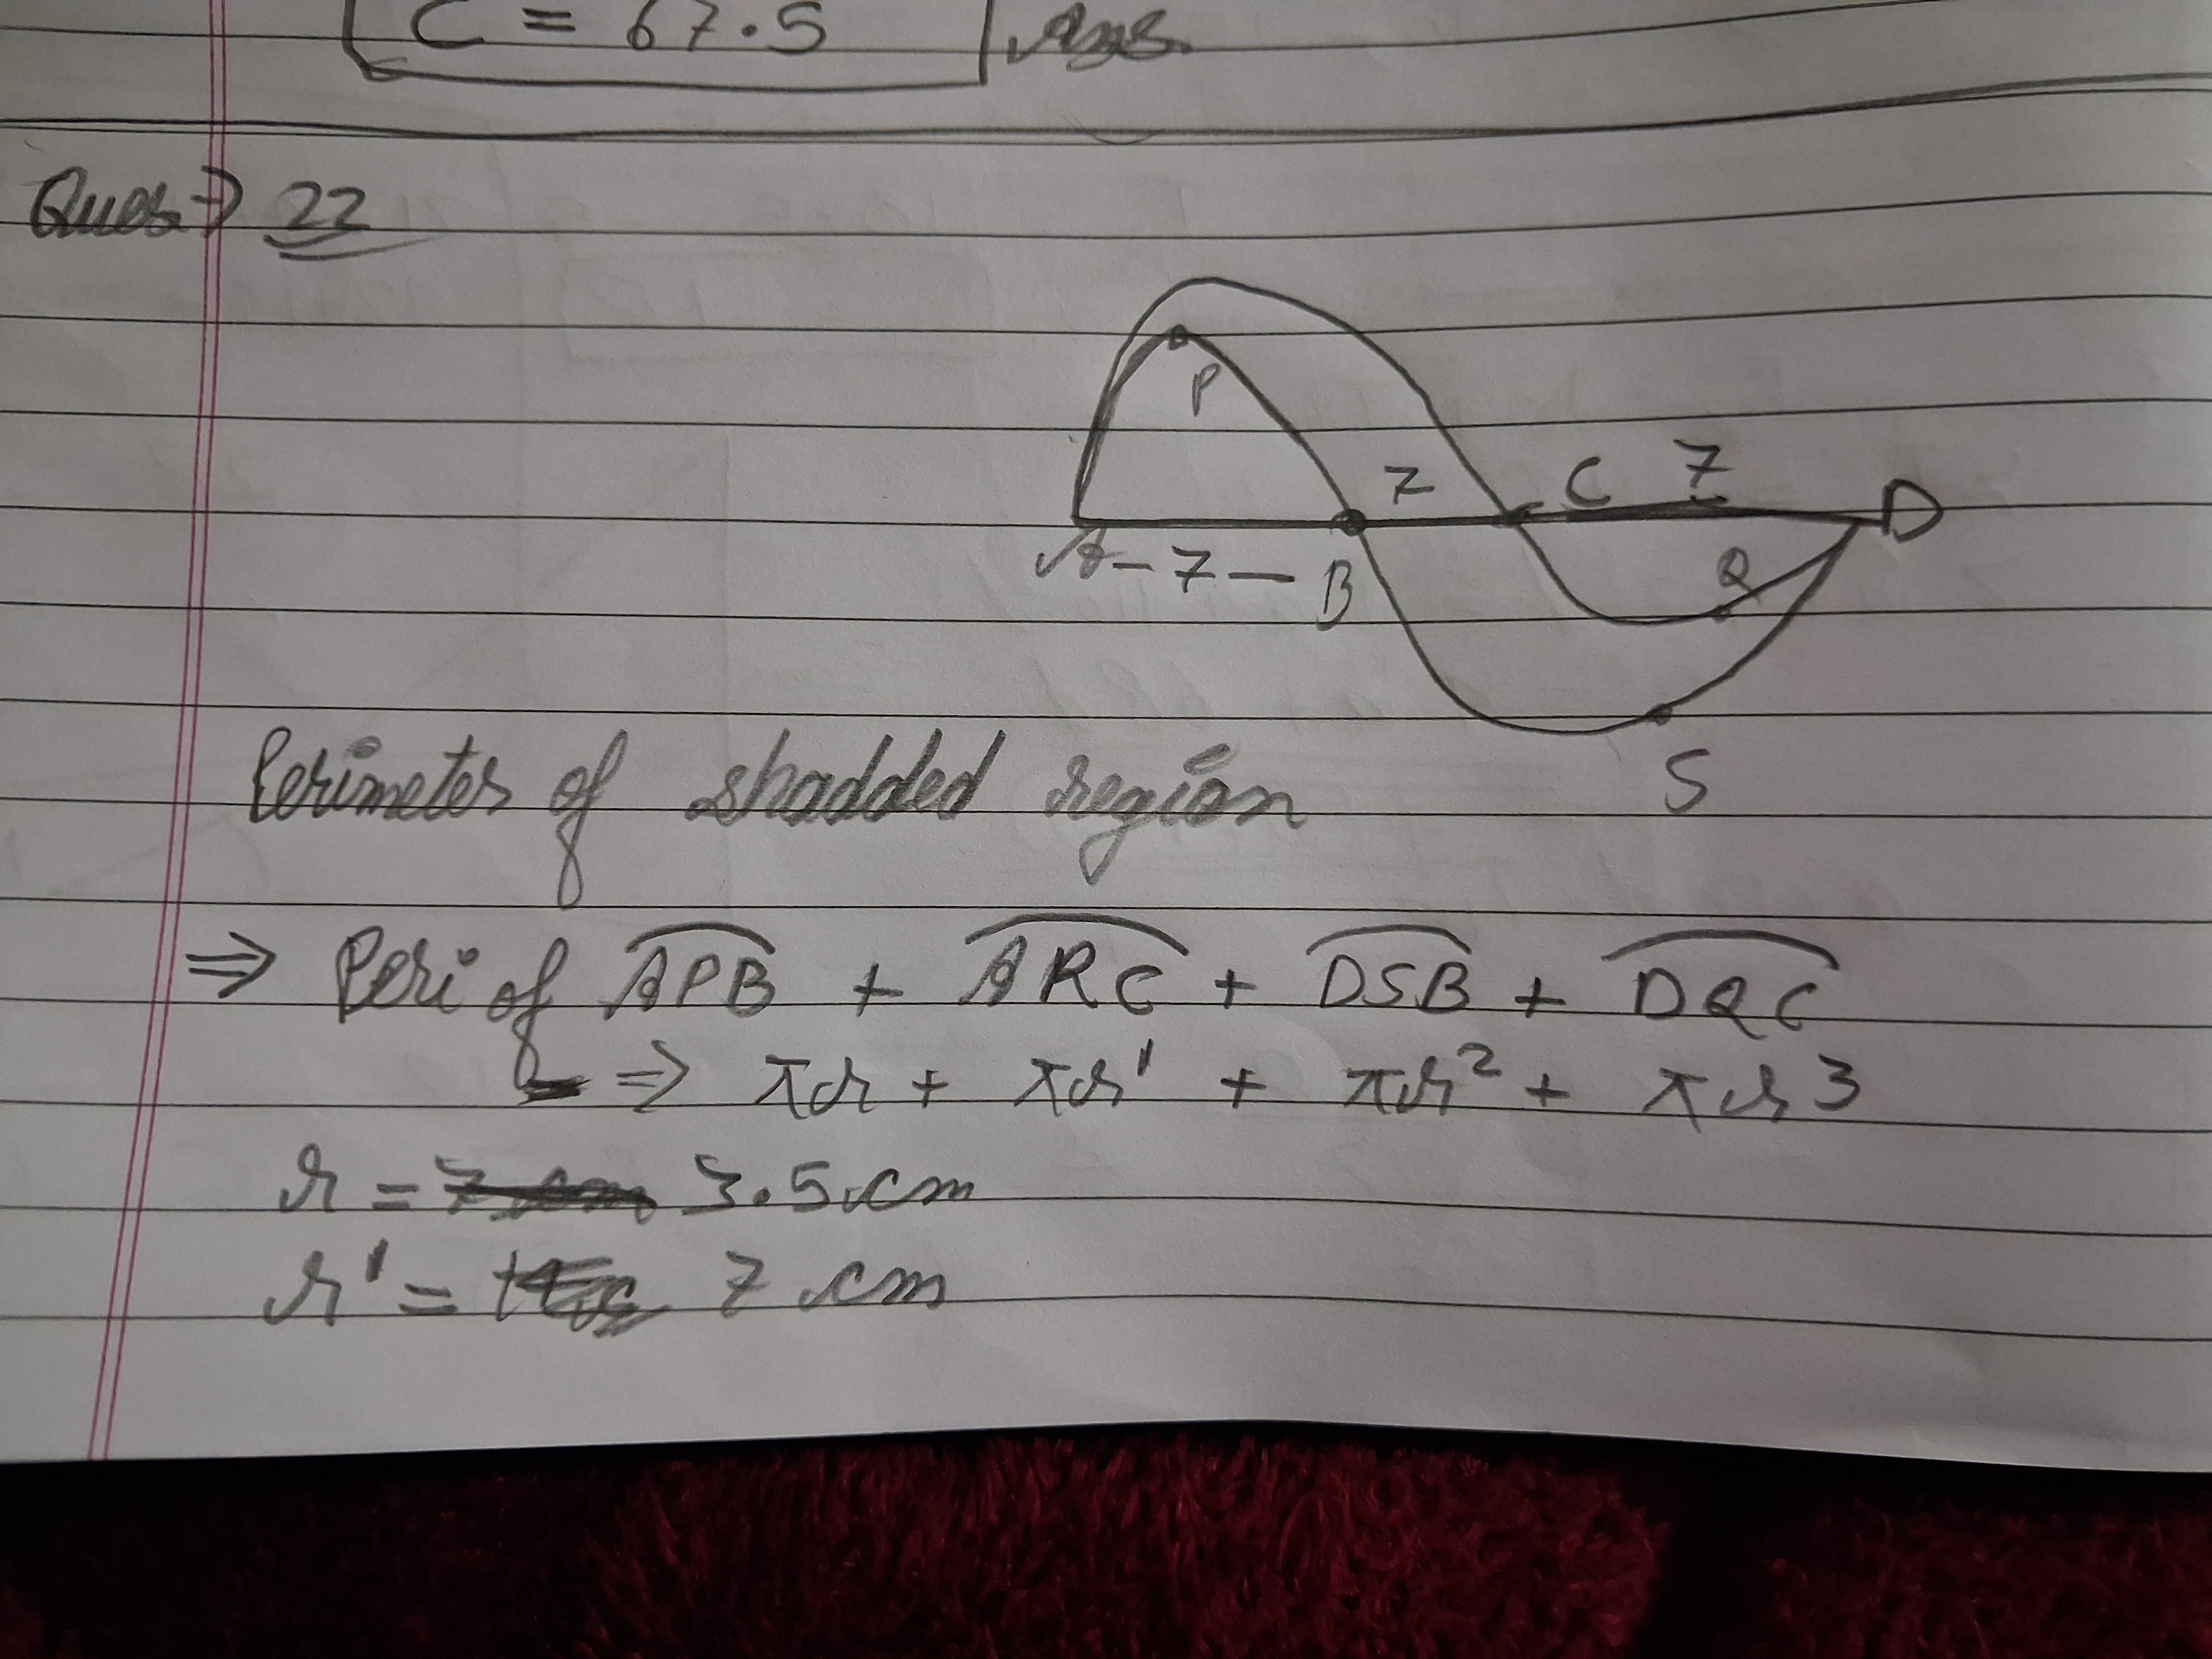 C = 67.5 Ans.
Ques → 22
P
7 C 7 D
A - 7 - B Q
S
Perimeter of shadded region
⇒ Peri of APB + ARC + DSB + DQC
⇒ πr + πr' + πr² + πr3
r = 3.5 cm
r' = 7 cm